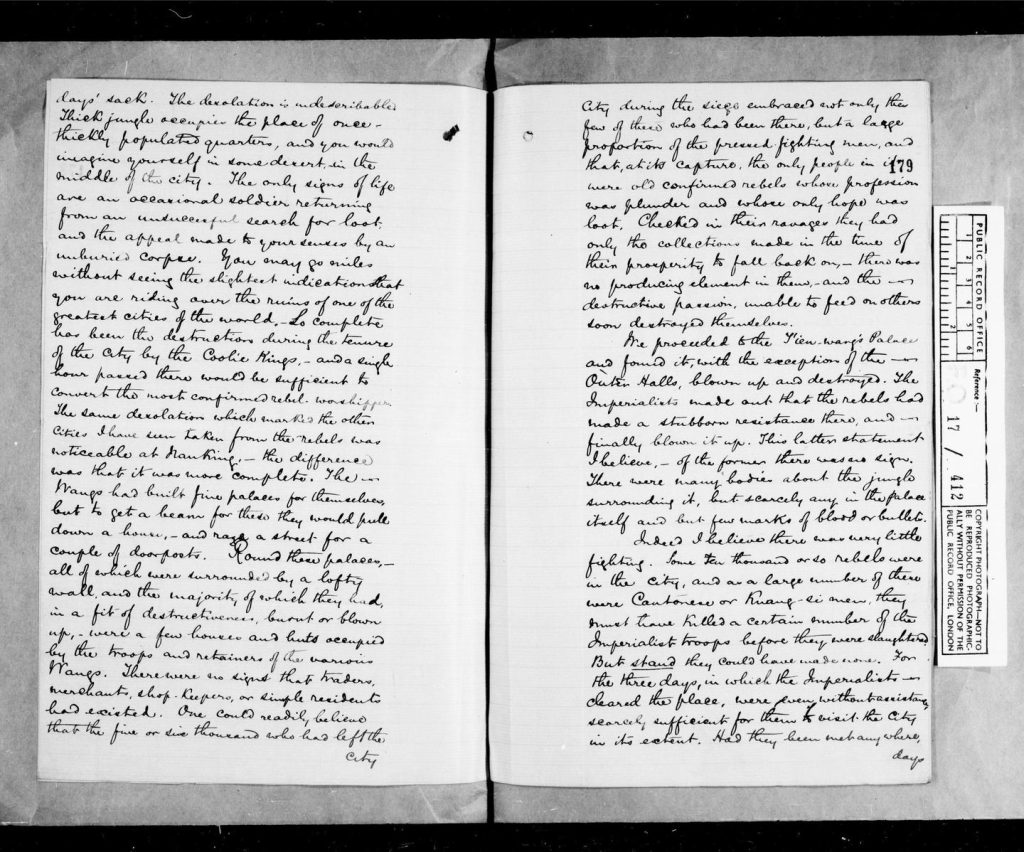 days' sack. The desolation is indescribable
Thick jungle occupies the place of once-
thickly populated quarters, and you would
imagine yourself in some desert, in the
middle of the city. The only signs of life
are an occasional soldier returning
from an unsuccessful search for loot,
and the appeal made to your senses by an
unburied corpse. You may go miles
without seeing the slightest indication that
you are riding over the ruins of one of the
greatest cities of the world. - So complete
has been the destruction during the tenure
of the City by the Coolie Kings, - and a single
hour passed there would be sufficient to
convert the most confirmed rebel-worshipper
The same desolation which marked the other
Cities I have seen taken from the rebels was
noticeable at Nanking, - the difference
was that it was more complete. The —
Wangs had built fine palaces for themselves,
but to get a beam for these they would pull
down a house, - and raze a street for a
couple of doorposts. Round these palaces, -
all of which were surrounded by a lofty
wall, and the majority of which they had,
in a fit of destructiveness, burnt or blown
up, - were a few houses and huts occupied
by the troops and retainers of the various
Wangs. There were no signs that traders,
merchants, shop-keepers, or simple residents
had existed. One could readily believe
that the five or six thousand who had left the
City
City during the siege embraced not only the
few of these who had been there, but a large
proportion of the pressed fighting men, and
that, at its capture, the only people in it
179
were old confirmed rebels whose profession
was plunder and whose only hope was
loot. Checked in their ravages they had
only the collections made in the time of
their prosperity to fall back on, - there was
no producing element in them, - and the —
destructive passion, unable to feed on others
soon destroyed themselves.
We proceeded to the T'ien-wang's Palace
and found it, with the exception of the —
Outer Halls, blown up and destroyed. The
Imperialists made out that the rebels had
made a stubborn resistance there, and —
finally blown it up. This latter statement
I believe, - of the former there was no sign.
There were many bodies about the jungle
surrounding it, but scarcely any in the Palace
itself and but few marks of blood or bullets.
Indeed I believe there was very little
fighting. Some ten thousand or so rebels were
in the city, and as a large number of these
were Cantonese or Kwang-si men, they
must have killed a certain number of the
Imperialist troops before they were slaughtered.
But stand they could have made none. For
the three days, in which the Imperialists —
cleared the place, were even, without assistance,
scarcely sufficient for them to visit the City
in its extent. Had they been met anywhere,
days
PUBLIC RECORD OFFICE
1 2 3 4 5 6
1 2
Reference :—
17 / 412
COPYRIGHT PHOTOGRAPH—NOT TO
BE REPRODUCED PHOTOGRAPHIC-
ALLY WITHOUT PERMISSION OF THE
PUBLIC RECORD OFFICE, LONDON